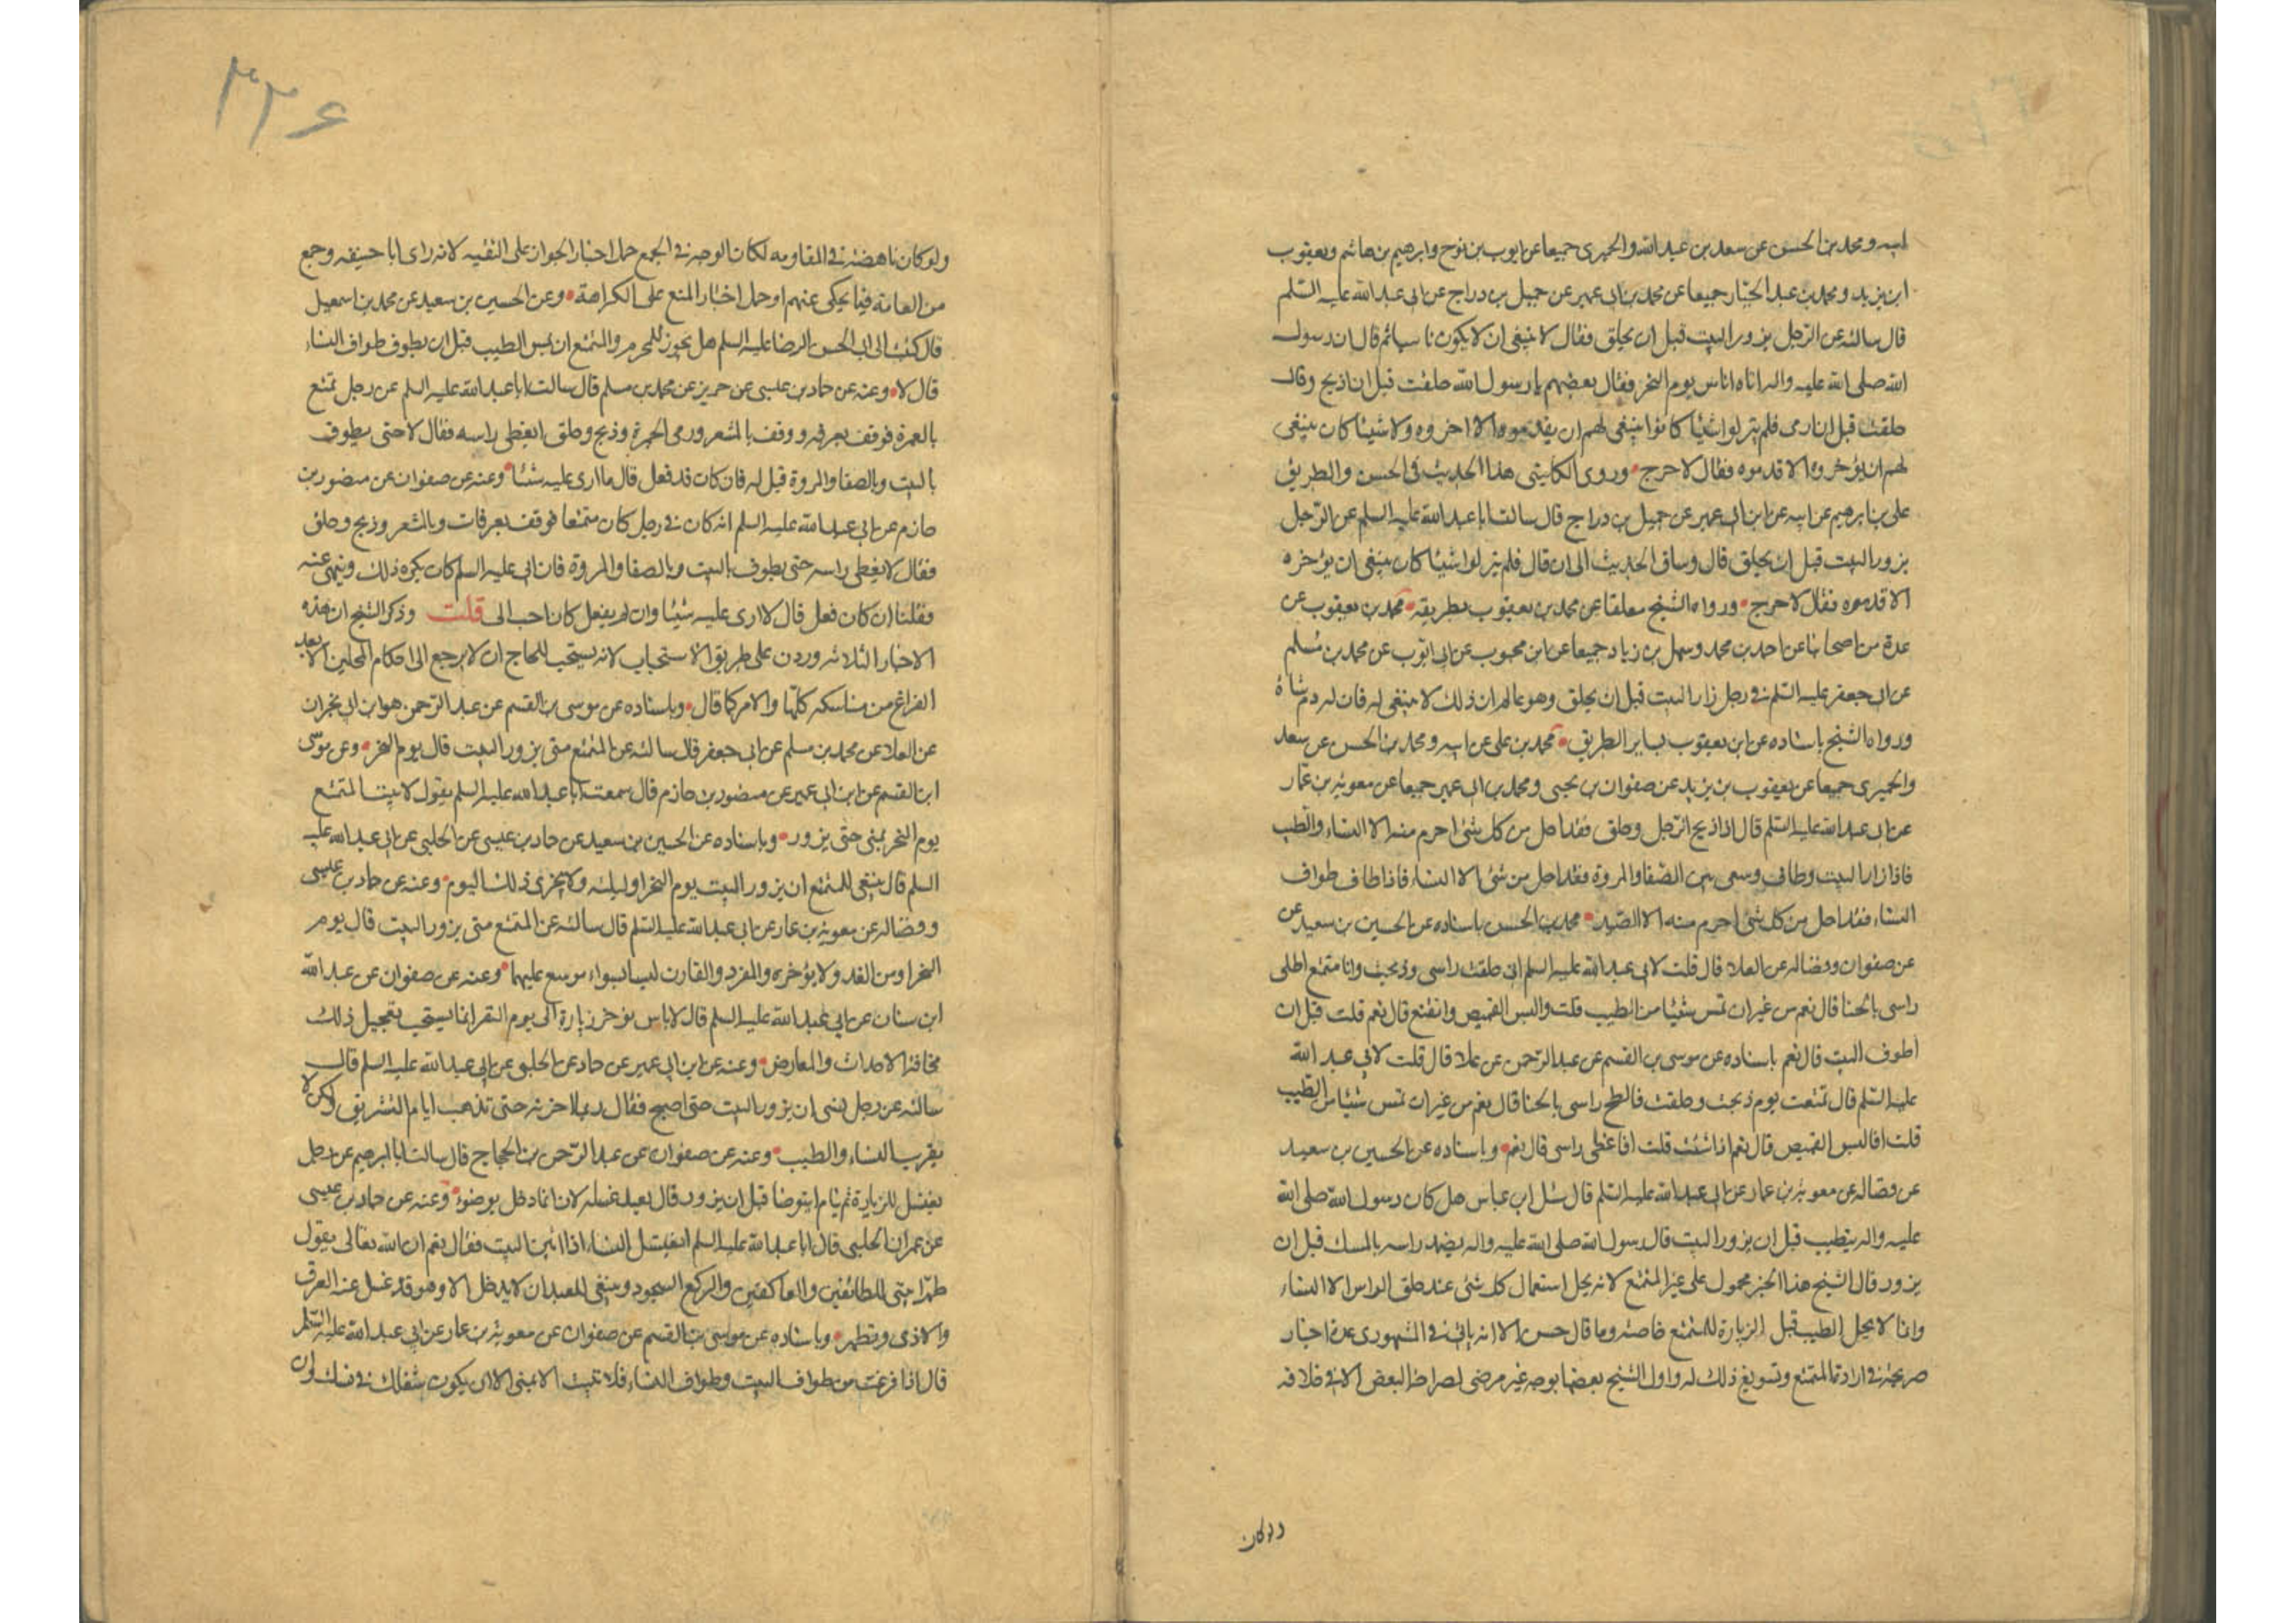 ابيه ومحمد بن الحسن عن سعد بن عبد الله والحميرى جميعا عن ايوب بن نوح وابرهيم بن هاشم ويعقوب
ابن يزيد ومحمد بن عبد الجبار جميعا عن محمد بن ابى عمير عن جميل بن دراج عن ابى عبد الله عليه السلم
قال سالته عن الرجل يزور البيت قبل ان يحلق فقال لا ينبغى الا ان يكون ناسيا ثم قال ان رسول
الله صلى الله عليه واله اتاه اناس يوم النحر فقال بعضهم يا رسول الله حلقت قبل ان اذبح وقال
حلقت قبل ان ارمى فلم يتركوا شيئا كانوا ينبغى لهم ان يقدموه الا اخروه ولا شيئا كان ينبغى
لهم ان يؤخروه الا قدموه فقال لا حرج وروى الكلينى هذا الحديث فى الحسن والطريق
على بن ابرهيم عن ابيه عن ابن ابى عمير عن جميل بن دراج قال سالت ابا عبد الله عليه السلم عن الرجل
يزور البيت قبل ان يحلق قال وساق الحديث الى ان قال فلم يتركوا شيئا كان ينبغى ان يؤخره
الا قدموه فقال لا حرج ورواه الشيخ معلقا عن محمد بن يعقوب بطريقه محمد بن يعقوب عن
عدة من اصحابنا عن احمد بن محمد وسهل بن زياد جميعا عن ابن محبوب عن ابى ايوب عن محمد بن مسلم
عن ابى جعفر عليه السلم فى رجل زار البيت قبل ان يحلق وهو عالم ان ذلك لا ينبغى له فان له دم شاة
ورواه الشيخ باسناده عن ابن يعقوب بساير الطريق محمد بن على عن ابيه ومحمد بن الحسن عن سعد
والحميرى جميعا عن يعقوب بن يزيد عن صفوان بن يحيى ومحمد بن ابى عمير جميعا عن معوية بن عمار
عن ابى عبد الله عليه السلم قال اذا ذبح الرجل وحلق فقد احل من كل شئ احرم منه الا النساء والطيب
فاذا زار البيت وطاف وسعى بين الصفا والمروة فقد احل من شئ الا النساء فاذا طاف طواف
النساء فقد احل من كل شئ احرم منه الا الصيد محمد بن الحسن باسناده عن الحسين بن سعيد عن
عن صفوان وفضاله عن العلا قال قلت لابى عبد الله عليه السلم انى حلقت راسى وذبحت وانا متمتع اطلى
راسى بالحنا قال نعم من غير ان تمس شيئا من الطيب قلت والبس القميص واتقنع قال نعم قلت قبل ان
اطوف البيت قال نعم باسناده عن موسى بن القسم عن عبد الرحمن عن علا قال قلت لابى عبد الله
عليه السلم قال تمتعت يوم ذبحت وحلقت فالطخ راسى بالحنا قال نعم من غير ان تمس شيئا من الطيب
قلت افالبس القميص قال نعم اذا شئت قلت افاغطى راسى قال نعم وباسناده عن الحسين بن سعيد
عن فضاله عن معوية بن عمار عن ابى عبد الله عليه السلم قال سئل ابن عباس هل كان رسول الله صلى الله
عليه واله يتطيب قبل ان يزور البيت قال رسول الله صلى الله عليه واله يضمد راسه بالمسك قبل ان
يزور قال الشيخ هذا الخبر محمول على غير المتمتع لانه يحل استعمال كل شئ عند حلق الراس الا النساء
وانما لا يحل الطيب قبل الزيارة للمتمتع خاصة وما قال حسن الا انه ياتى فى المشهورى عدة اخبار
صريحة فى ارادة المتمتع وتسويغ ذلك له واول الشيخ بعضها بوجه غير مرضى لصراحة البعض الاخر فى خلافه
ولو كان
۳۳۶
ولو كان ناهضة فى المقاومه لكان الوجه فى الجمع حمل اخبار الجواز على التقيه لانه راى ابا حنيفه وجمع
من العامة فيما يحكى عنهم او حمل اخبار المنع على الكراهة وعن الحسين بن سعيد عن محمد بن اسمعيل
قال كتبت الى ابى الحسن الرضا عليه السلم هل يجوز للمحرم والمتمتع ان يمس الطيب قبل ان يطوف طواف النساء
قال لا وعنه عن حماد بن عيسى عن حريز عن محمد بن مسلم قال سالت ابا عبد الله عليه السلم عن رجل تمتع
بالعمرة فوقف بعرفه ووقف بالمشعر ورمى الجمرة وذبح وحلق ايغطى راسه فقال لا حتى يطوف
بالبيت وبالصفا والمروة قيل له فان كان قد فعل قال ما ارى عليه شئا وعنه عن صفوان عن منصور بن
حازم عن ابى عبد الله عليه السلم انه كان فى رجل كان متمتعا فوقف بعرفات وبالمشعر وذبح وحلق
فقال لا يغطى راسه حتى يطوف بالبيت وبالصفا والمروة فان ابى عليه السلم كان يكره ذلك وينهى عنه
فقلنا ان كان فعل قال لا ارى عليه شيئا وان لم يفعل كان احب الى قلت وذكر الشيخ ان هذه
الاخبار الثلاثه وردن على طريق الاستحباب لانه يستحب للحاج ان لا يرجع الى احكام المحلين الا بعد
الفراغ من مناسكه كلها والامر كما قال وباسناده عن موسى بن القسم عن عبد الرحمن هو ابن ابى نجران
عن العلا عن محمد بن مسلم عن ابى جعفر قال سالته عن المتمتع متى يزور البيت قال يوم النحر وعن موسى
ابن القسم عن ابن ابى عمير عن منصور بن حازم قال سمعت ابا عبد الله عليه السلم يقول لا يبيت المتمتع
يوم النحر بمنى حتى يزور وباسناده عن الحسين بن سعيد عن حماد بن عيسى عن الحلبى عن ابى عبد الله عليه
السلم قال ينبغى للمتمتع ان يزور البيت يوم النحر او ليلته ولا يؤخرى ذلك اليوم وعنه عن حماد بن عيسى
وفضاله عن معوية بن عمار عن ابى عبد الله عليه السلم قال سالته عن المتمتع متى يزور البيت قال يوم
النحر او من الغد ولا يؤخره والمفرد والقارن ليسا بسواء موسع عليهما وعنه عن صفوان عن عبد الله
ابن سنان عن ابى عبد الله عليه السلم قال لا باس يؤخر زيارة الى يوم النفر انما يستحب تعجيل ذلك
مخافة الاحداث والمعارض وعنه عن ابن ابى عمير عن حماد عن الحلبى عن ابى عبد الله عليه السلم قال
سالته عن رجل نسى ان يزور البيت حتى اصبح فقال ربما اخرته حتى تذهب ايام التشريق ولكن لا
يقرب النساء والطيب وعنه عن صفوان عن عبد الرحمن بن الحجاج قال سالت ابا ابرهيم عن رجل
يغتسل للزيارة ثم ينام ايتوضا قبل ان يزور قال يعيد غسله لانه انما دخل بوضوء وعنه عن حماد بن عيسى
عن عمران الحلبى قال ابا عبد الله عليه السلم ايغتسل النساء اذا اتين البيت فقال نعم ان الله تعالى يقول
طهرا بيتى للطائفين والعاكفين والركع السجود وينبغى للعبد ان لا يدخل الا وهو قد غسل عنه العرق
والاذى وتطهر وباسناده عن موسى بن القسم عن صفوان عن معوية بن عمار عن ابى عبد الله عليه السلم
قال اذا فرغت من طواف البيت وطواف النساء فلا تبيت الا بمنى الا ان يكون شغلك فى نسك وان